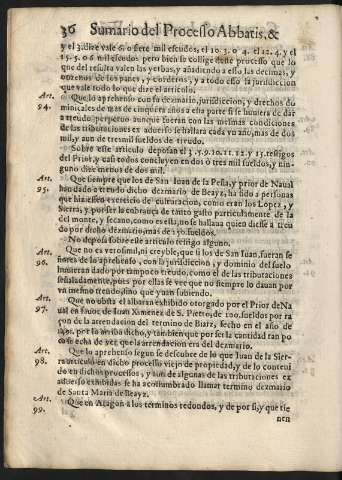 36 Sumario del Processo Abbatis, &
y el 3. dize vale 6. o siete mil escudos, el 10. 3. o 4. el 12. 4. y el
15. 5. o 6 mil escudos pero bien se collige deste processo que lo
que del resulta valen las yerbas, y añadiendo a esso las decimas, y
onzenos de los panes, y corderos, y a todo esso la jurisdiccion
que vale todo lo que dize el articulo.
Art. 94.
Que lo aprehenso con su dezmario, jurisdiccion, y drechos do
minicales de mas de cinquẽta años a esta parte si se huuiera de dar
a treudo perpetuo aunque fueran con las mismas condiciones
de las tributaciones ex aduerso se hallara cada vn año, mas de dos
mil, y aun de tres mil sueldos de treudo.
Sobre este articulo deposan el 3. 7. 9. 10. 11. 12. y 15. testigos
del Prior, y casi todos concluyen en dos ò tres mil sueldos, y nin-
guno dize menos de dos mil.
Art. 95.
Que siempre que los de San Iuan de la Peña, y prior de Naual
han dado a treudo dicho dezmario de Beayz, ha sido a personas
que hiziessen exercicio de culturacion, como eran los Lopez, y
Sierra, y por ser la cobrança de tanto gasto particularmente de la
del monte, y secano, como es ella, no se hallaua quien diesse a treu
do por dicho dezmario, mas de 150. sueldos.
No deposa sobre este articulo testigo alguno.
Art. 96.
Que no es verosimil, ni creyble, que si los de San Iuan, fueran se
ñores de lo aprehenso, con la jurisdiccion, y dominio del suelo
lo huuieran dado por tampoco treudo, como el de las tributaciones
señaladamente, pues por ellas se vee que no siempre lo dauan por
vn mesmo treudo, sino que yuan subiendo.
Art. 97.
Que no obsta el albaran exhibido otorgado por el Prior de Na
ual en fauor de Iuan Ximenez de S. Pietro, de 100. sueldos por ra
çon de la arrendacion del termino de Biarz, fecho en el año de
por lo arriba dicho, y tambien que por ser la cantidad tan po
ca se echa de ver, que la arrendacion era del dezmario.
Art. 98.
Que lo aprehenso segun se descubre de lo que Iuan de la Sier-
ra articulo en dicho processo viejo de propiedad, y de lo conteni
do en dichos processos, y aun de algunas de las tributaciones ex
aduerso exhibidas se ha acostumbrado llamar termino dezmario
de Santa Maria de Beayz.
Art. 99.
Que en Aragon a los terminos redondos, y de por si, y que tie
nen